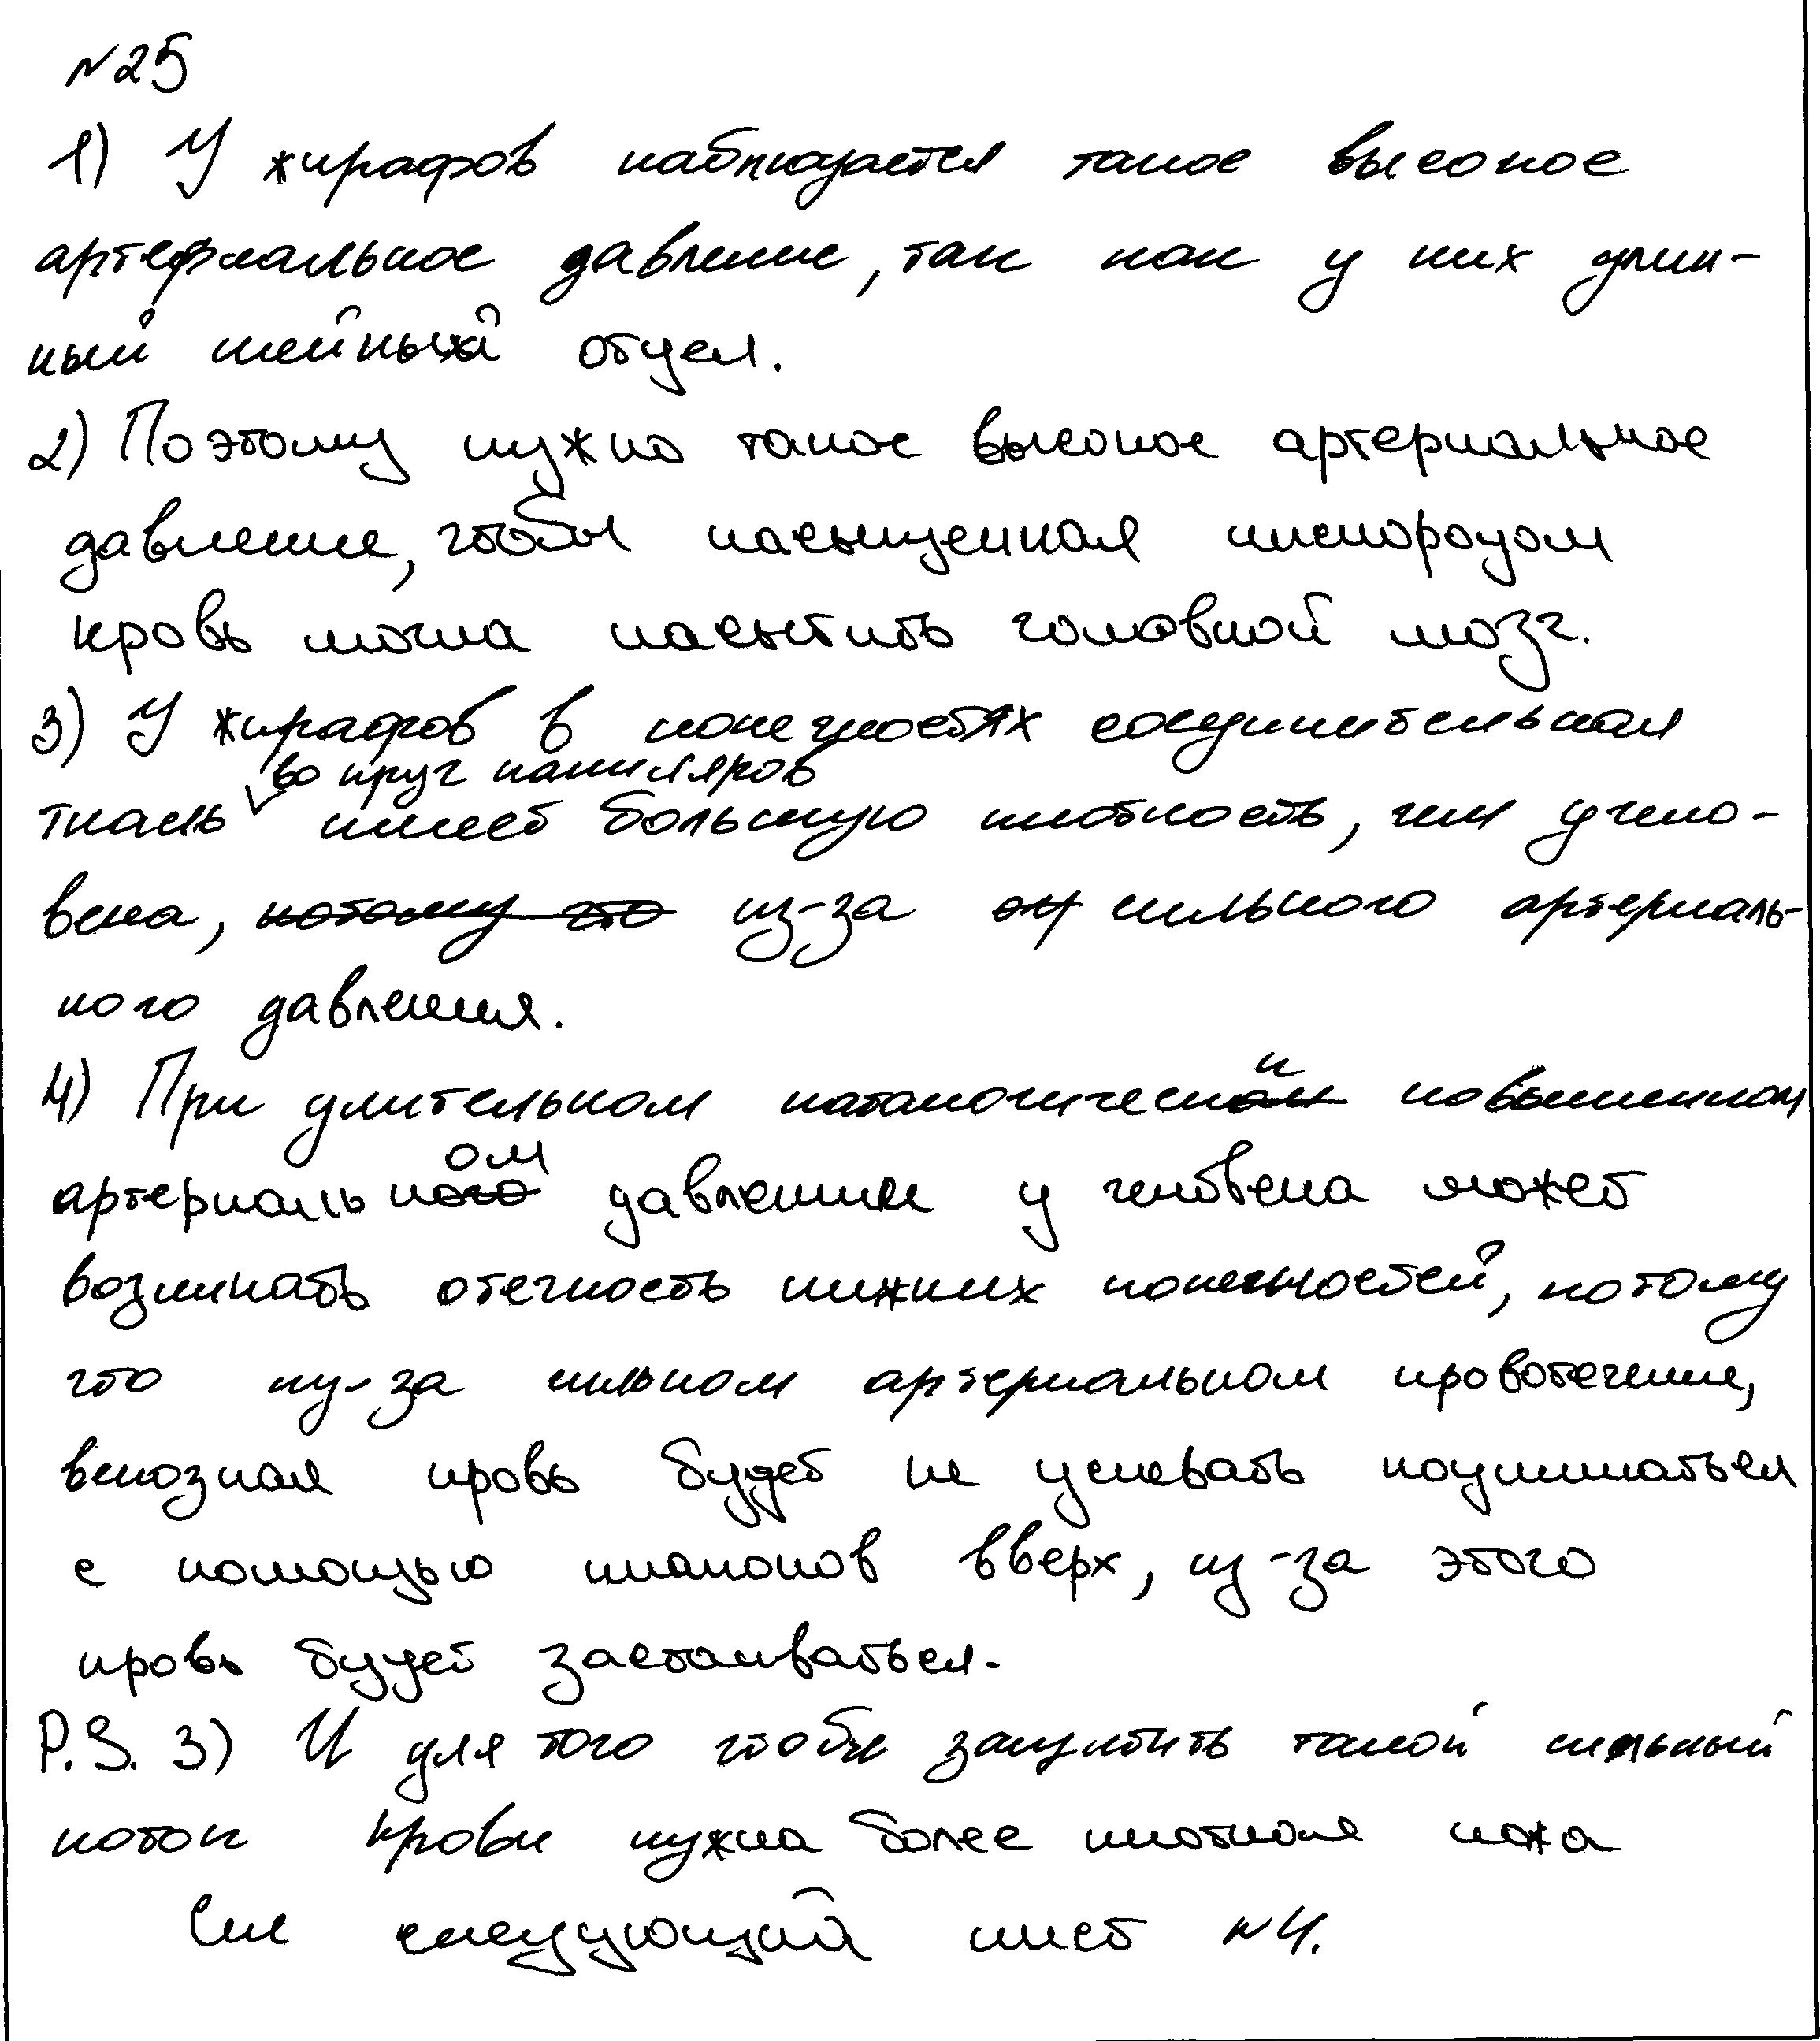 №25
1) У жирафов наблюдается такое высокое
артериальное давление, так как у них длин-
ный шейный отдел.
2) Поэтому нужно такое высокое артериальное
давление, чтобы насыщенная кислородом
кровь могла насытить головной мозг.
3) У жирафов в конечностях соединительная
вокруг капиляров
ткань имеет большую плотность, чем у чело-
века, потому что из-за оч сильного артериаль-
ного давления.
4) При длительном патологически повышенном
артериальном давлении у человека может
возникать отечность нижних конечностей, потому
что из-за сильном артериальном кровотечение,
венозная кровь будет не успевать подниматься
с помощью клапонов вверх, из-за этого
кровь будет застаиваться.
P.S. 3) И для того чтобы защитить такой сильный
поток крови нужна более плотная кожа
См следующий лист №4.